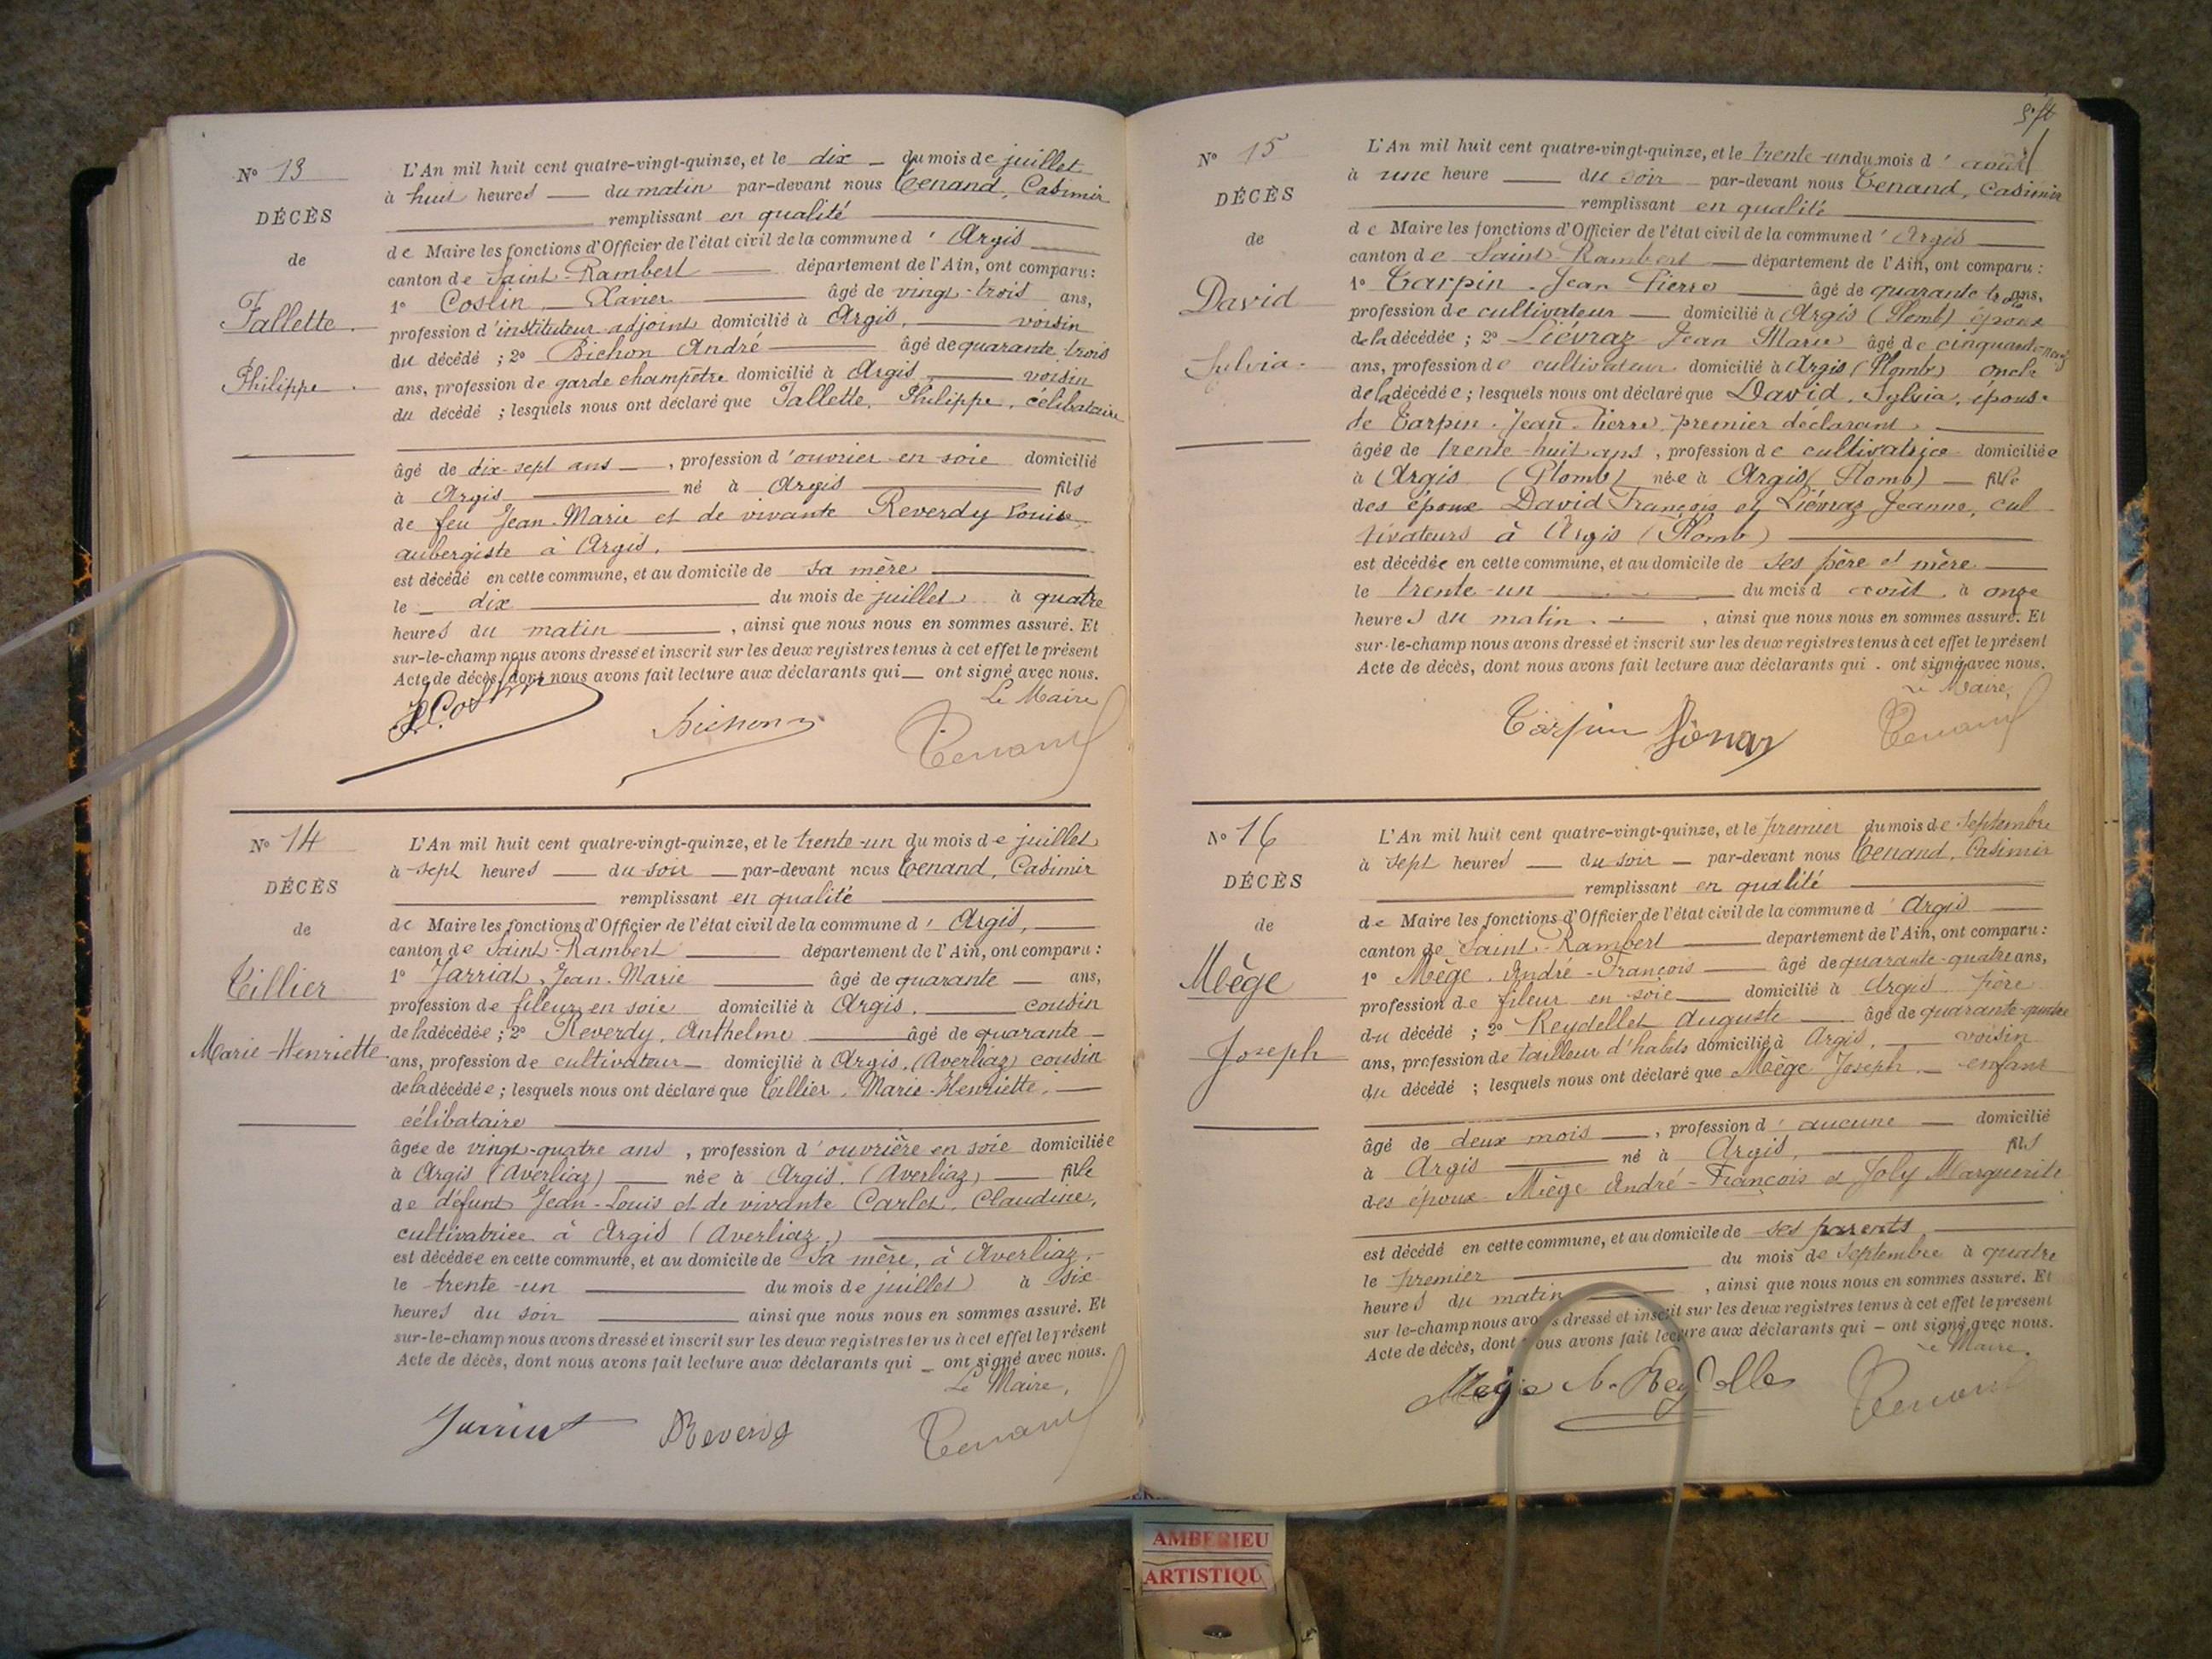 N° 13
DÉCÈS
de
Fallette.
Philippe.
L'An mil huit cent quatre-vingt-quinze, et le dix du mois de juillet
à huit heures du matin par-devant nous Tenand, Casimir
remplissant en qualité
de Maire les fonctions d'Officier de l'état civil de la commune d'Argis
canton de Saint-Rambert département de l'Ain, ont comparu :
1° Coslin, Xavier âgé de vingt-trois ans,
profession d'instituteur adjoint domicilié à Argis, voisin
du décédé ; 2° Bichon André âgé de quarante-trois
ans, profession de garde champêtre domicilié à Argis voisin
du décédé ; lesquels nous ont déclaré que Fallette, Philippe, célibataire
âgé de dix-sept ans, profession d'ouvrier en soie domicilié
à Argis né à Argis fils
de feu Jean-Marie et de vivante Reverdy Louise
aubergiste à Argis,
est décédé en cette commune, et au domicile de sa mère
le dix du mois de juillet à quatre
heures du matin, ainsi que nous nous en sommes assuré. Et
sur-le-champ nous avons dressé et inscrit sur les deux registres tenus à cet effet le présent
Acte de décès, dont nous avons fait lecture aux déclarants qui ont signé avec nous.
Le Maire
Bichon
Tenand
N° 14
DÉCÈS
de
Tillier
Marie-Henriette
L'An mil huit cent quatre-vingt-quinze, et le trente-un du mois de juillet
à sept heures du soir par-devant nous Tenand, Casimir
remplissant en qualité
de Maire les fonctions d'Officier de l'état civil de la commune d'Argis,
canton de Saint-Rambert département de l'Ain, ont comparu :
1° Jarriat, Jean-Marie âgé de quarante ans,
profession de fileur en soie domicilié à Argis, cousin
de la décédée ; 2° Reverdy, Anthelme âgé de quarante
ans, profession de cultivateur domicilié à Argis, (Averliaz) cousin
de la décédée ; lesquels nous ont déclaré que Tillier, Marie-Henriette,
célibataire
âgée de vingt-quatre ans, profession d'ouvrière en soie domiciliée
à Argis (Averliaz) née à Argis. (Averliaz) fille
de défunt Jean-Louis et de vivante Carlet, Claudine,
cultivatrice à Argis (Averliaz)
est décédée en cette commune, et au domicile de sa mère, à Averliaz,
le trente-un du mois de juillet à six
heures du soir ainsi que nous nous en sommes assuré. Et
sur-le-champ nous avons dressé et inscrit sur les deux registres tenus à cet effet le présent
Acte de décès, dont nous avons fait lecture aux déclarants qui ont signé avec nous.
Le Maire,
Jarriat Reverdy Tenand
N° 15
DÉCÈS
de
David
Sylvia.
L'An mil huit cent quatre-vingt-quinze, et le trente-un du mois d'août
à une heure du soir par-devant nous Tenand, Casimir
remplissant en qualité
de Maire les fonctions d'Officier de l'état civil de la commune d'Argis
canton de Saint-Rambert département de l'Ain, ont comparu :
1° Tarpin Jean Pierre âgé de quarante trois ans,
profession de cultivateur domicilié à Argis (Plomb) époux
de la décédée ; 2° Liévraz Jean Marie âgé de cinquante-neuf
ans, profession de cultivateur domicilié à Argis (Plomb) oncle
de la décédée ; lesquels nous ont déclaré que David, Sylvia, épouse
de Tarpin Jean-Pierre, premier déclarant,
âgée de trente-huit ans, profession de cultivatrice domiciliée
à Argis (Plomb) née à Argis (Plomb) fille
des époux David François et Liévraz Jeanne, cul
tivateurs à Argis (Plomb)
est décédée en cette commune, et au domicile de ses père et mère
le trente-un du mois d août à onze
heures du matin, ainsi que nous nous en sommes assuré. Et
sur-le-champ nous avons dressé et inscrit sur les deux registres tenus à cet effet le présent
Acte de décès, dont nous avons fait lecture aux déclarants qui ont signé avec nous.
Le Maire,
Tarpin Tenand
N° 16
DÉCÈS
de
Mège
Joseph
L'An mil huit cent quatre-vingt-quinze, et le premier du mois de Septembre
à sept heures du soir par-devant nous Tenand, Casimir
remplissant en qualité
de Maire les fonctions d'Officier de l'état civil de la commune d'Argis
canton de Saint-Rambert département de l'Ain, ont comparu :
1° Mège André-François âgé de quarante-quatre ans,
profession de fileur en soie domicilié à Argis père
du décédé ; 2° Reydellet Auguste âgé de quarante-quatre
ans, profession de tailleur d'habits domicilié à Argis, voisin
du décédé ; lesquels nous ont déclaré que Mège Joseph enfant
âgé de deux mois, profession d'aucune domicilié
à Argis né à Argis, fils
des époux Mège André-François et Joly Marguerite
est décédé en cette commune, et au domicile de ses parents
le premier du mois de Septembre à quatre
heures du matin, ainsi que nous nous en sommes assuré. Et
sur le-champ nous avons dressé et inscrit sur les deux registres tenus à cet effet le présent
Acte de décès, dont nous avons fait lecture aux déclarants qui ont signé avec nous.
Le Maire.
Mège Tenand
AMBERIEU
ARTISTIQU